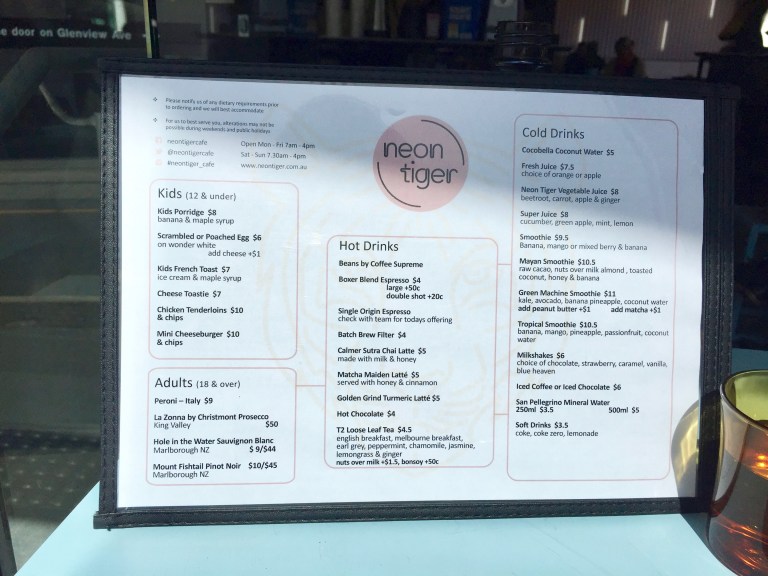 e door on Glenview Ave
Please notify us of any dietary requirements prior
to ordering and we will best accommodate
For us to best serve you, alterations may not be
possible during weekends and public holidays
neontigercafe
@neontigercafe
#neontiger_cafe
Open Mon - Fri 7am - 4pm
Sat - Sun 7.30am - 4pm
www.neontiger.com.au
neon
tiger
Kids (12 & under)
Kids Porridge $8
banana & maple syrup
Scrambled or Poached Egg $6
on wonder white
add cheese +$1
Kids French Toast $7
ice cream & maple syrup
Cheese Toastie $7
Chicken Tenderloins $10
& chips
Mini Cheeseburger $10
& chips
Adults (18 & over)
Peroni – Italy $9
La Zonna by Christmont Prosecco
King Valley $50
Hole in the Water Sauvignon Blanc
Marlborough NZ $ 9/$44
Mount Fishtail Pinot Noir $10/$45
Marlborough NZ
Hot Drinks
Beans by Coffee Supreme
Boxer Blend Espresso $4
large +50c
double shot +20c
Single Origin Espresso
check with team for todays offering
Batch Brew Filter $4
Calmer Sutra Chai Latte $5
made with milk & honey
Matcha Maiden Latté $5
served with honey & cinnamon
Golden Grind Turmeric Latté $5
Hot Chocolate $4
T2 Loose Leaf Tea $4.5
english breakfast, melbourne breakfast,
earl grey, peppermint, chamomile, jasmine,
lemongrass & ginger
nuts over milk +$1.5, bonsoy +50c
Cold Drinks
Cocobella Coconut Water $5
Fresh Juice $7.5
choice of orange or apple
Neon Tiger Vegetable Juice $8
beetroot, carrot, apple & ginger
Super Juice $8
cucumber, green apple, mint, lemon
Smoothie $9.5
Banana, mango or mixed berry & banana
Mayan Smoothie $10.5
raw cacao, nuts over milk almond , toasted
coconut, honey & banana
Green Machine Smoothie $11
kale, avocado, banana pineapple, coconut water
add peanut butter +$1 add matcha +$1
Tropical Smoothie $10.5
banana, mango, pineapple, passionfruit, coconut
water
Milkshakes $6
choice of chocolate, strawberry, caramel, vanilla,
blue heaven
Iced Coffee or Iced Chocolate $6
San Pellegrino Mineral Water
250ml $3.5 500ml $5
Soft Drinks $3.5
coke, coke zero, lemonade